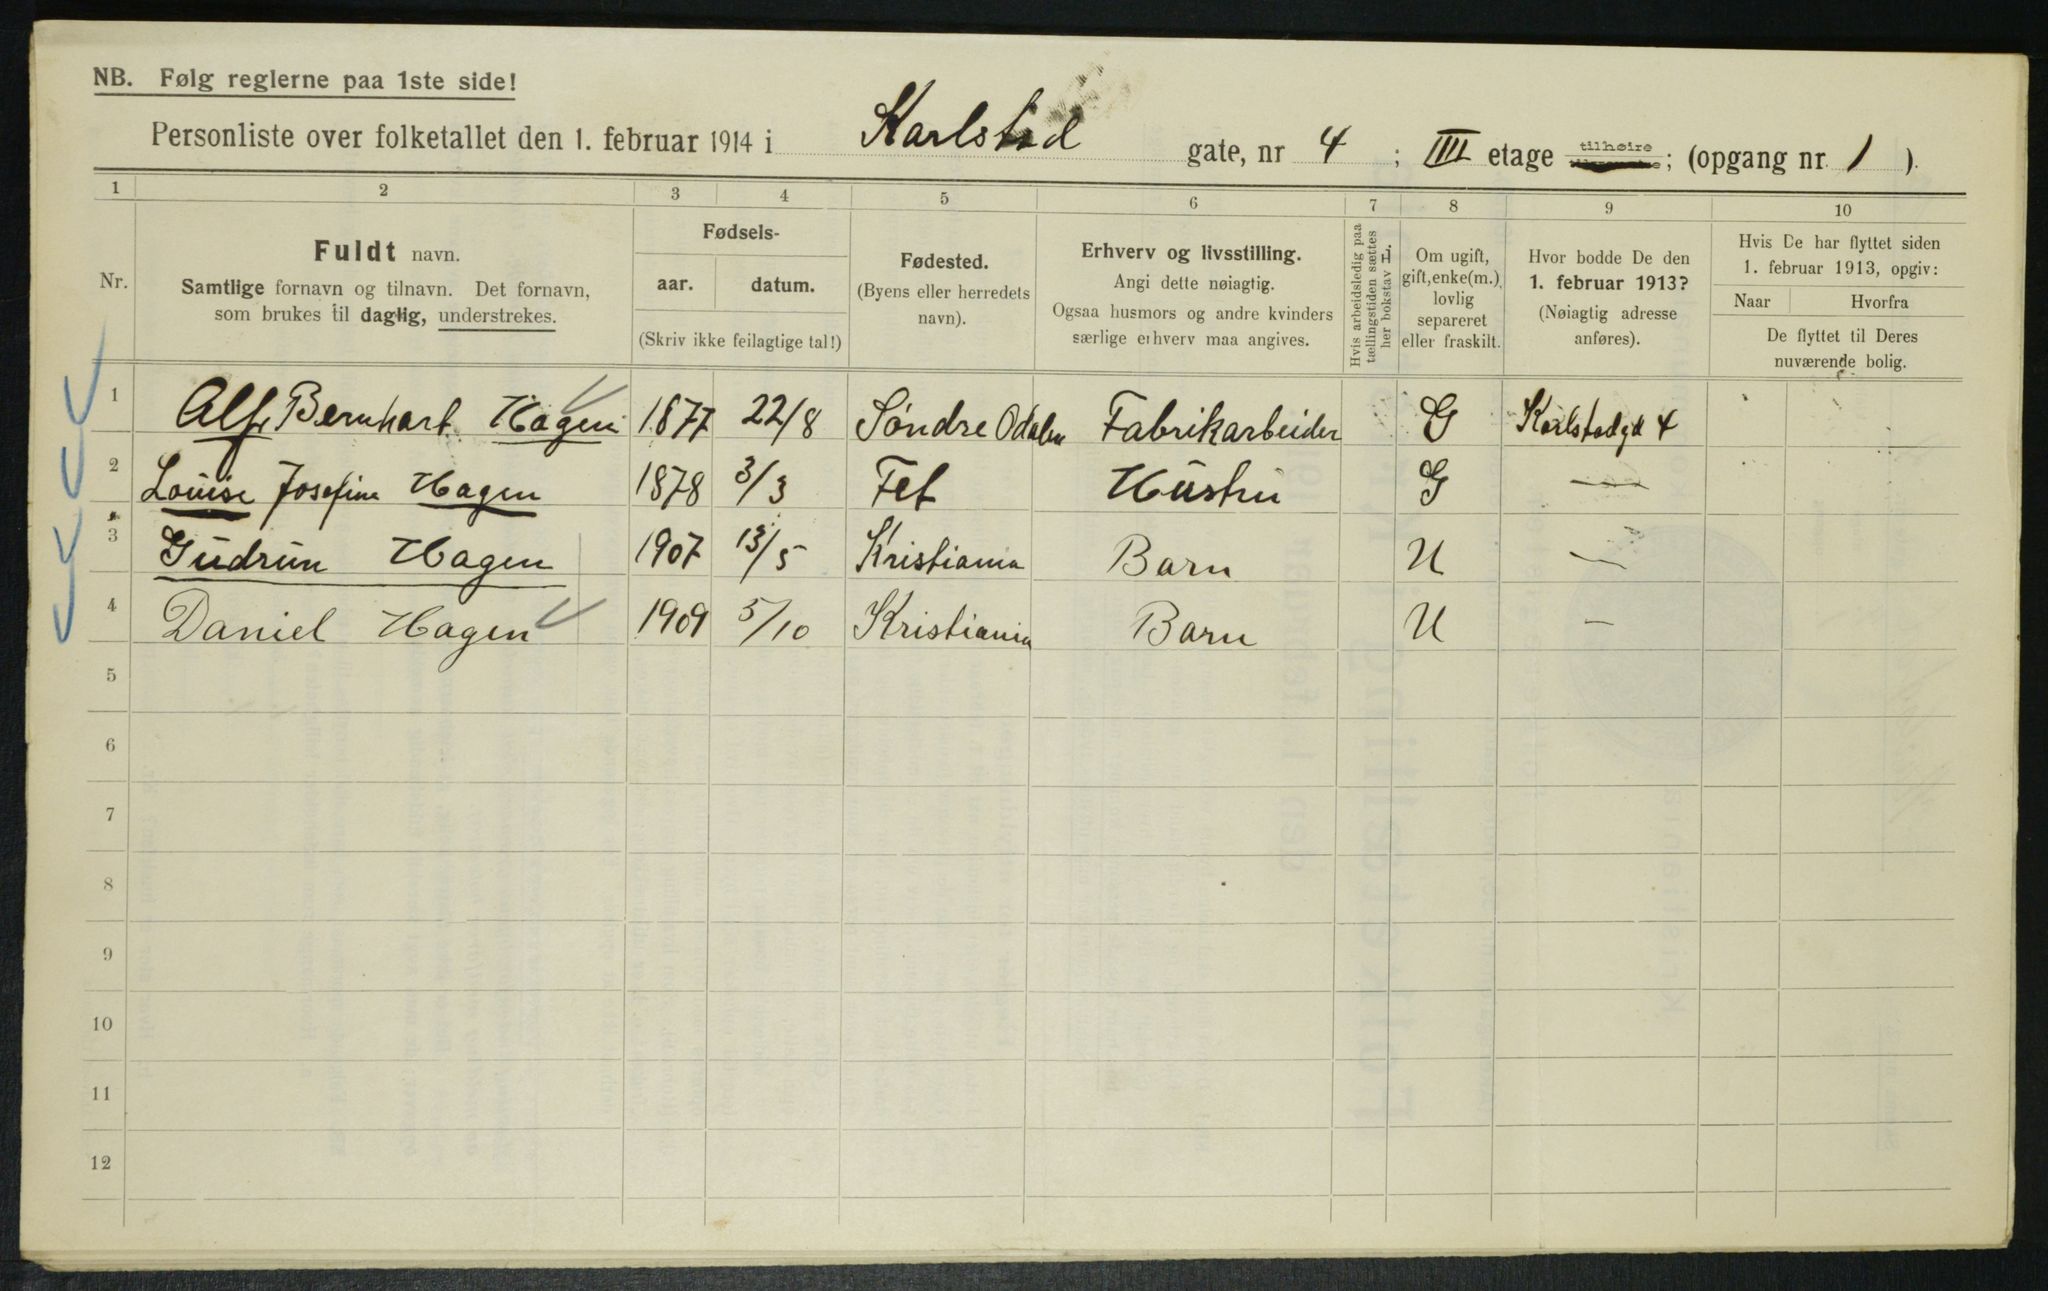 NB. Følg reglerne paa 1ste side!
Personliste over folketallet den 1. februar 1914 i Karlstad gate, nr 4 ; III etage tilhøire ; (opgang nr. 1 ).
1 2 3 4 5 6 7 8 9 10
Nr.
Fuldt navn.
Samtlige fornavn og tilnavn. Det fornavn,
som brukes til daglig, understrekes.
Fødsels-
aar. datum.
(Skriv ikke feilagtige tal!)
Fødested.
(Byens eller herredets
navn).
Erhverv og livsstilling.
Angi dette nøiagtig.
Ogsaa husmors og andre kvinders
særlige erhverv maa angives.
Hvis arbeidsledig paa
tællingstiden sættes
her bokstav L.
Om ugift,
gift, enke(m.),
lovlig
separeret
eller fraskilt.
Hvor bodde De den
1. februar 1913?
(Nøiagtig adresse
anføres).
Hvis De har flyttet siden
1. februar 1913, opgiv:
Naar Hvorfra
De flyttet til Deres
nuværende bolig.
1 Alf Bernhart Hagen 1877 22/8 Søndre Odalen Fabrikarbeider G Karlstadgd 4
2 Louise Josefine Hagen 1878 3/3 Fet Hustru G —
3 Gudrun Hagen 1907 13/5 Kristiania Barn U —
4 Daniel Hagen 1909 5/10 Kristiania Barn U —
5
6
7
8
9
10
11
12